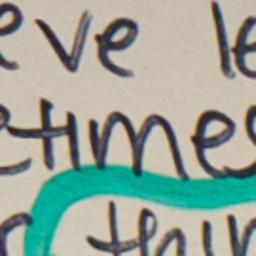 eve le
etimes
r thin